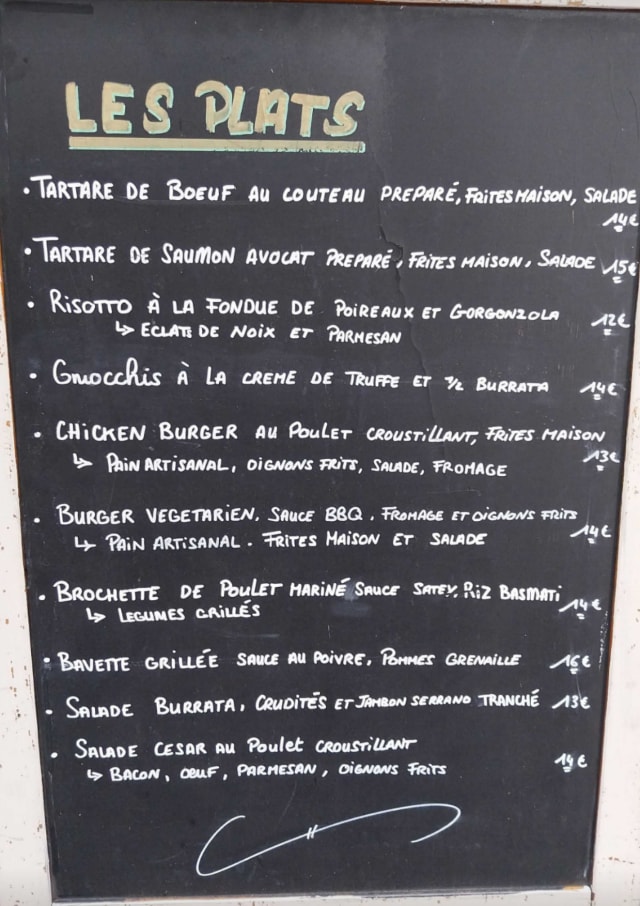 LES PLATS
• TARTARE DE BOEUF AU COUTEAU PREPARÉ, FRITES MAISON, SALADE
14€
• TARTARE DE SAUMON AVOCAT PREPARÉ, FRITES MAISON, SALADE 15€
• RISOTTO À LA FONDUE DE POIREAUX ET GORGONZOLA 12€
↳ ECLATS DE NOIX ET PARMESAN
• GNOCCHIS À LA CREME DE TRUFFE ET 1/2 BURRATA 14€
• CHICKEN BURGER AU POULET CROUSTILLANT, FRITES MAISON
13€
↳ PAIN ARTISANAL, OIGNONS FRITS, SALADE, FROMAGE
• BURGER VEGETARIEN, SAUCE BBQ, FROMAGE ET OIGNONS FRITS
14€
↳ PAIN ARTISANAL. FRITES MAISON ET SALADE
• BROCHETTE DE POULET MARINÉ SAUCE SATEY, RIZ BASMATI
14€
↳ LEGUMES GRILLÉS
• BAVETTE GRILLÉE SAUCE AU POIVRE, POMMES GRENAILLE 16€
• SALADE BURRATA, CRUDITÉS ET JAMBON SERRANO TRANCHÉ 13€
• SALADE CESAR AU POULET CROUSTILLANT
14€
↳ BACON, OEUF, PARMESAN, OIGNONS FRITS